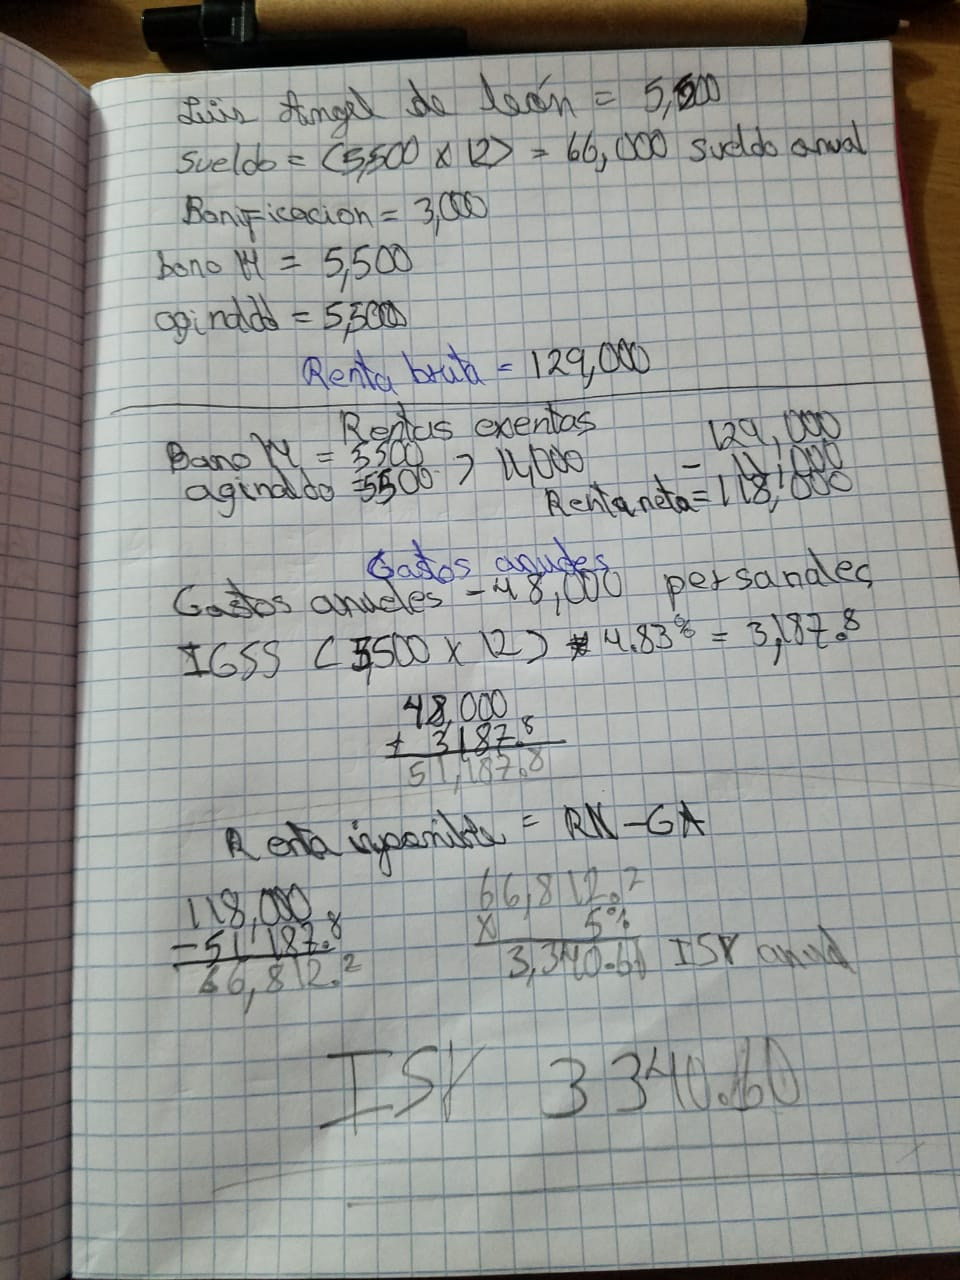 Luis Angel de león = 5,500
Sueldo = (5,500 x 12) = 66,000 sueldo anual
Bonificacion = 3,000
bono 14 = 5,500
aginaldo = 5,500
Renta bruta = 129,000
Rentas exentas
Bano 14 = 5500
aginaldo = 5500 > 11,000
129,000
- 11,000
Renta neta = 118,000
Gastos anudes
Gastos anueles - 48,000 persanales
IGSS (5,500 x 12) * 4.83% = 3,187.8
48,000
+ 3187.8
51,187.8
Renta inponible = RN - GA
118,000
- 51,187.8
66,812.2
66,812.2
x 5%
3,340.61 ISR anual
ISR 3340.60